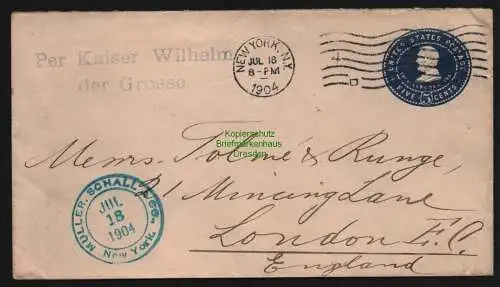 Per Kaiser Wilhelm
der Grosse.
NEW YORK, N.Y.
JUL 18
8-PM
1904
4
UNITED STATES POSTAGE
FIVE 5 CENTS
Kopierschutz
Briefmarkenhaus
Dresden
Messrs. Tolmé & Runge,
21 Mincing Lane
London E.C.
England
MULLER, SCHALL & CO.
JUL
18
1904
New York.